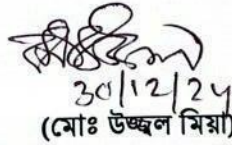 30/12/24
(মোঃ উজ্জ্বল মিয়া)